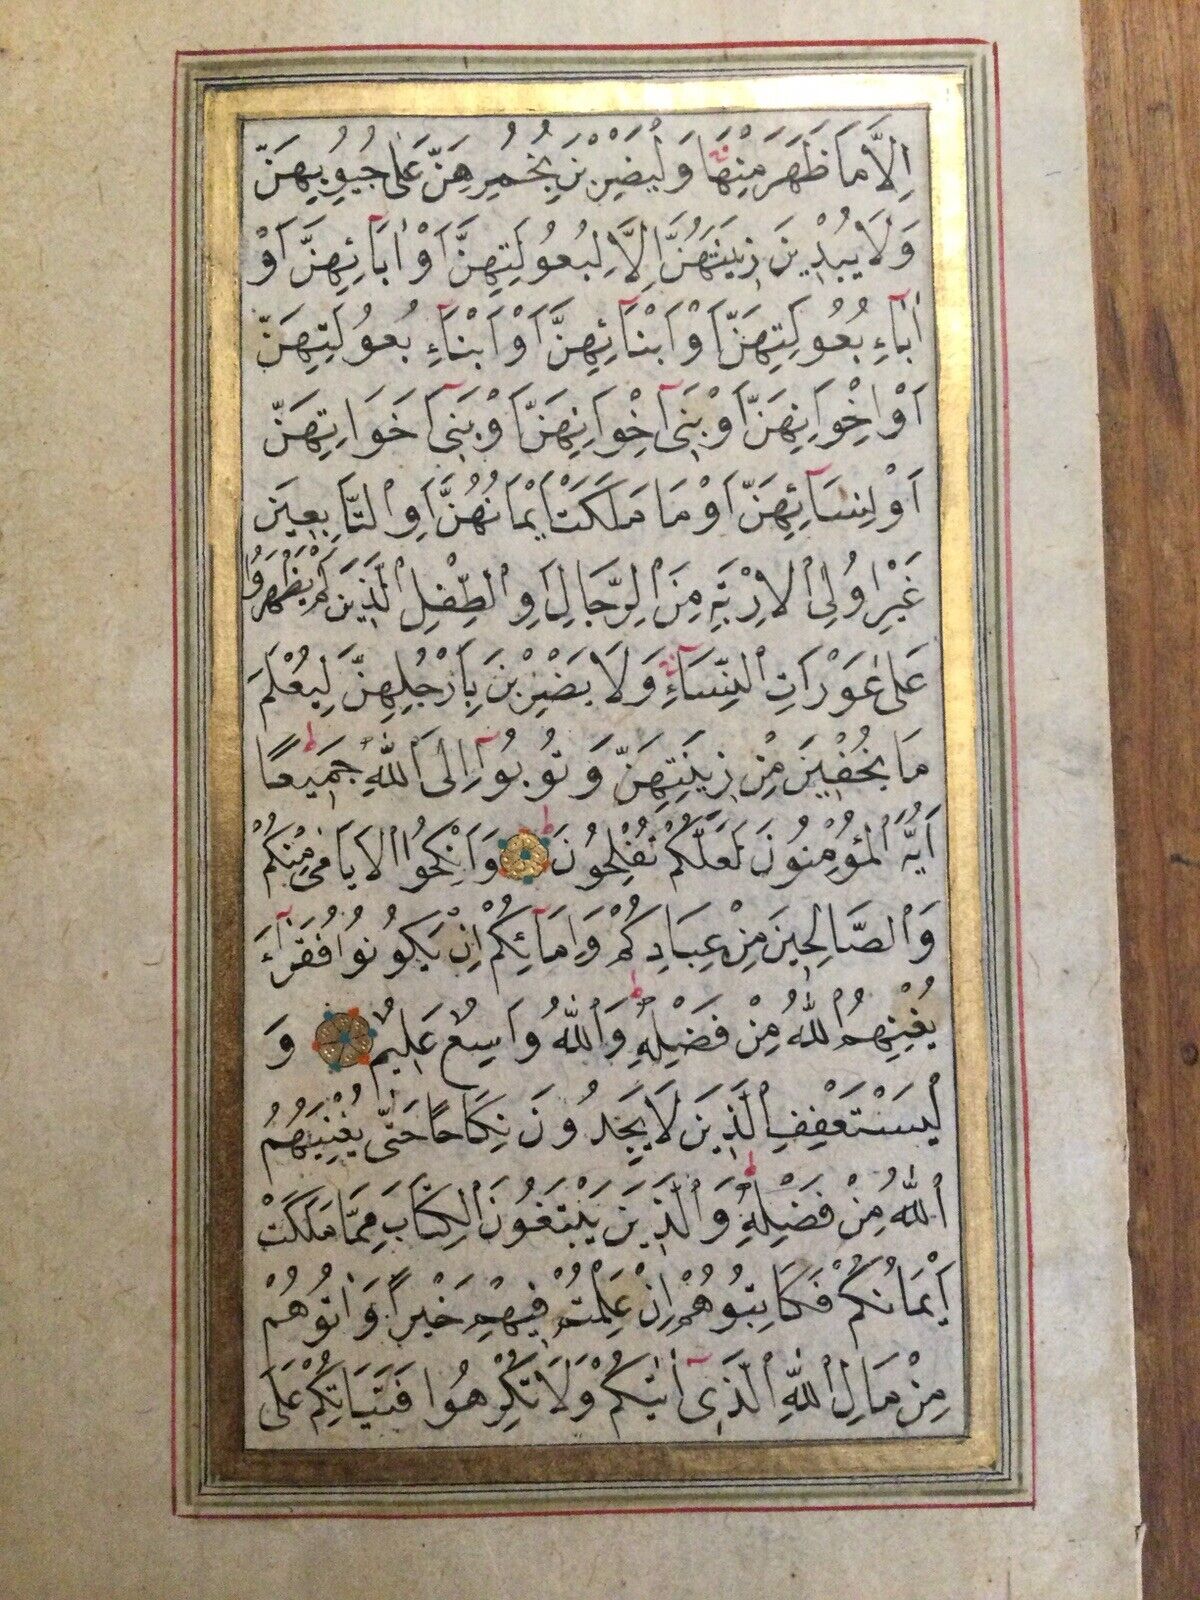 اِلَّا مَا ظَهَرَ مِنْهَا وَلْيَضْرِبْنَ بِخُمُرِهِنَّ عَلٰى جُيُوبِهِنَّ
وَلَا يُبْدٖينَ زٖينَتَهُنَّ اِلَّا لِبُعُولَتِهِنَّ اَوْ اٰبَآئِهِنَّ اَوْ
اٰبَآءِ بُعُولَتِهِنَّ اَوْ اَبْنَآئِهِنَّ اَوْ اَبْنَآءِ بُعُولَتِهِنَّ
اَوْ اِخْوَانِهِنَّ اَوْ بَنٖٓى اِخْوَانِهِنَّ اَوْ بَنٖٓى اَخَوَاتِهِنَّ
اَوْ نِسَآئِهِنَّ اَوْ مَا مَلَكَتْ اَيْمَانُهُنَّ اَوِ التَّابِعٖينَ
غَيْرِ اُولِى الْاِرْبَةِ مِنَ الرِّجَالِ اَوِ الطِّفْلِ الَّذٖينَ لَمْ يَظْهَرُوا
عَلٰى عَوْرَاتِ النِّسَآءِ وَلَا يَضْرِبْنَ بِاَرْجُلِهِنَّ لِيُعْلَمَ
مَا يُخْفٖينَ مِنْ زٖينَتِهِنَّ وَتُوبُوٓا اِلَى اللّٰهِ جَمٖيعًا
اَيُّهَ الْمُؤْمِنُونَ لَعَلَّكُمْ تُفْلِحُونَ وَاَنْكِحُوا الْاَيَامٰى مِنْكُمْ
وَالصَّالِحٖينَ مِنْ عِبَادِكُمْ وَاِمَآئِكُمْ اِنْ يَكُونُوا فُقَرَآءَ
يُغْنِهِمُ اللّٰهُ مِنْ فَضْلِهٖ وَاللّٰهُ وَاسِعٌ عَلٖيمٌ وَ
لْيَسْتَعْفِفِ الَّذٖينَ لَا يَجِدُونَ نِكَاحًا حَتّٰى يُغْنِيَهُمُ
اللّٰهُ مِنْ فَضْلِهٖ وَالَّذٖينَ يَبْتَغُونَ الْكِتَابَ مِمَّا مَلَكَتْ
اَيْمَانُكُمْ فَكَاتِبُوهُمْ اِنْ عَلِمْتُمْ فٖيهِمْ خَيْرًا وَاٰتُوهُمْ
مِنْ مَالِ اللّٰهِ الَّذٖٓى اٰتٰيكُمْ وَلَا تُكْرِهُوا فَتَيَاتِكُمْ عَلَى